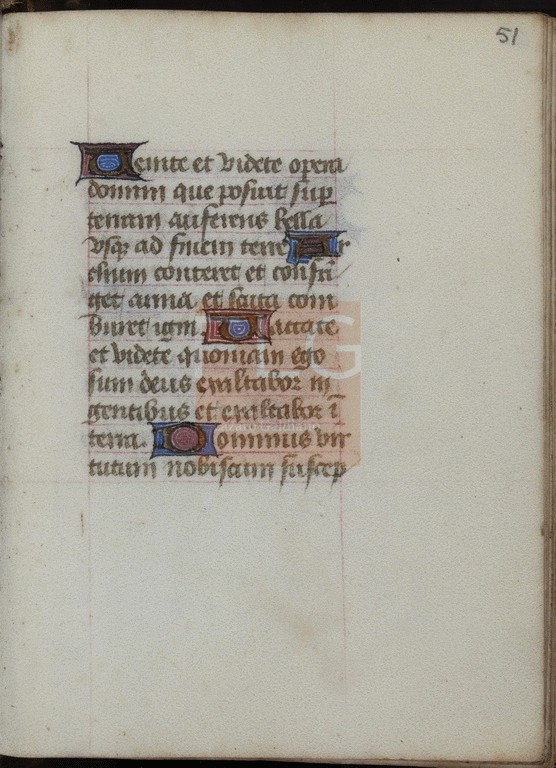 51
Venite et videte opera
domini que posuit sup
terram auferens bella
vsqȝ ad finem terre Ar
chum conteret et confri
get arma et scuta com
buret igni. Vaccate
et videte quoniam ego
sum deus exaltabor in
gentibus et exaltabor ī
terra. Dominus vir
tutum nobiscum suscep
LG